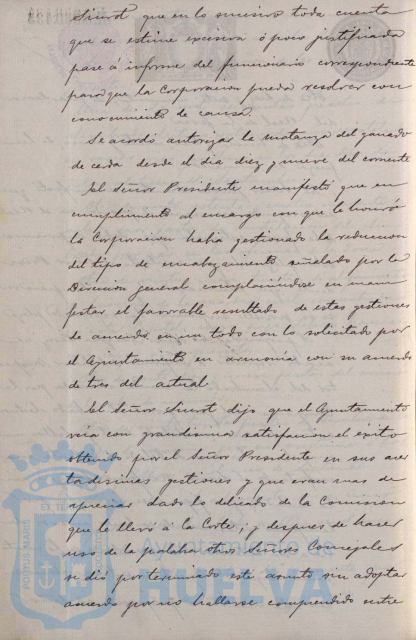 Siurot que en lo sucesivo toda cuenta
que se estime excesiva ó poco justificada
pase á informe del funcionario correspondiente
para que la Corporacion pueda resolver con
conocimiento de causa.
Se acordó autorizar la matanza del ganado
de cerda desde el dia diez y nueve del corriente
El Señor Presidente manifestó que en
cumplimiento al encargo con que le honró
la Corporacion habia gestionado la reduccion
del tipo de encabezamiento señalado por la
Direccion general complaciéndose en mani
festar el favorable resultado de estas gestiones
de acuerdo en un todo con lo solicitado por
el Ayuntamiento en armonía con su acuerdo
de tres del actual.
El Señor Siurot dijo que el Ayuntamiento
veia con grandisima satisfacion el éxito
obtenido por el Señor Presidente en sus acer
tadisimas gestiones y que eran mas de
apreciar dado lo delicado de la Comision
que le llevó á la Corte; y despues de hacer
uso de la palabra otros Señores Concejales
se dió por terminado este asunto sin adoptar
acuerdo por no hallarse comprendido entre
PORTUS MARIS ET TE
Ayuntamiento de
HUELVA